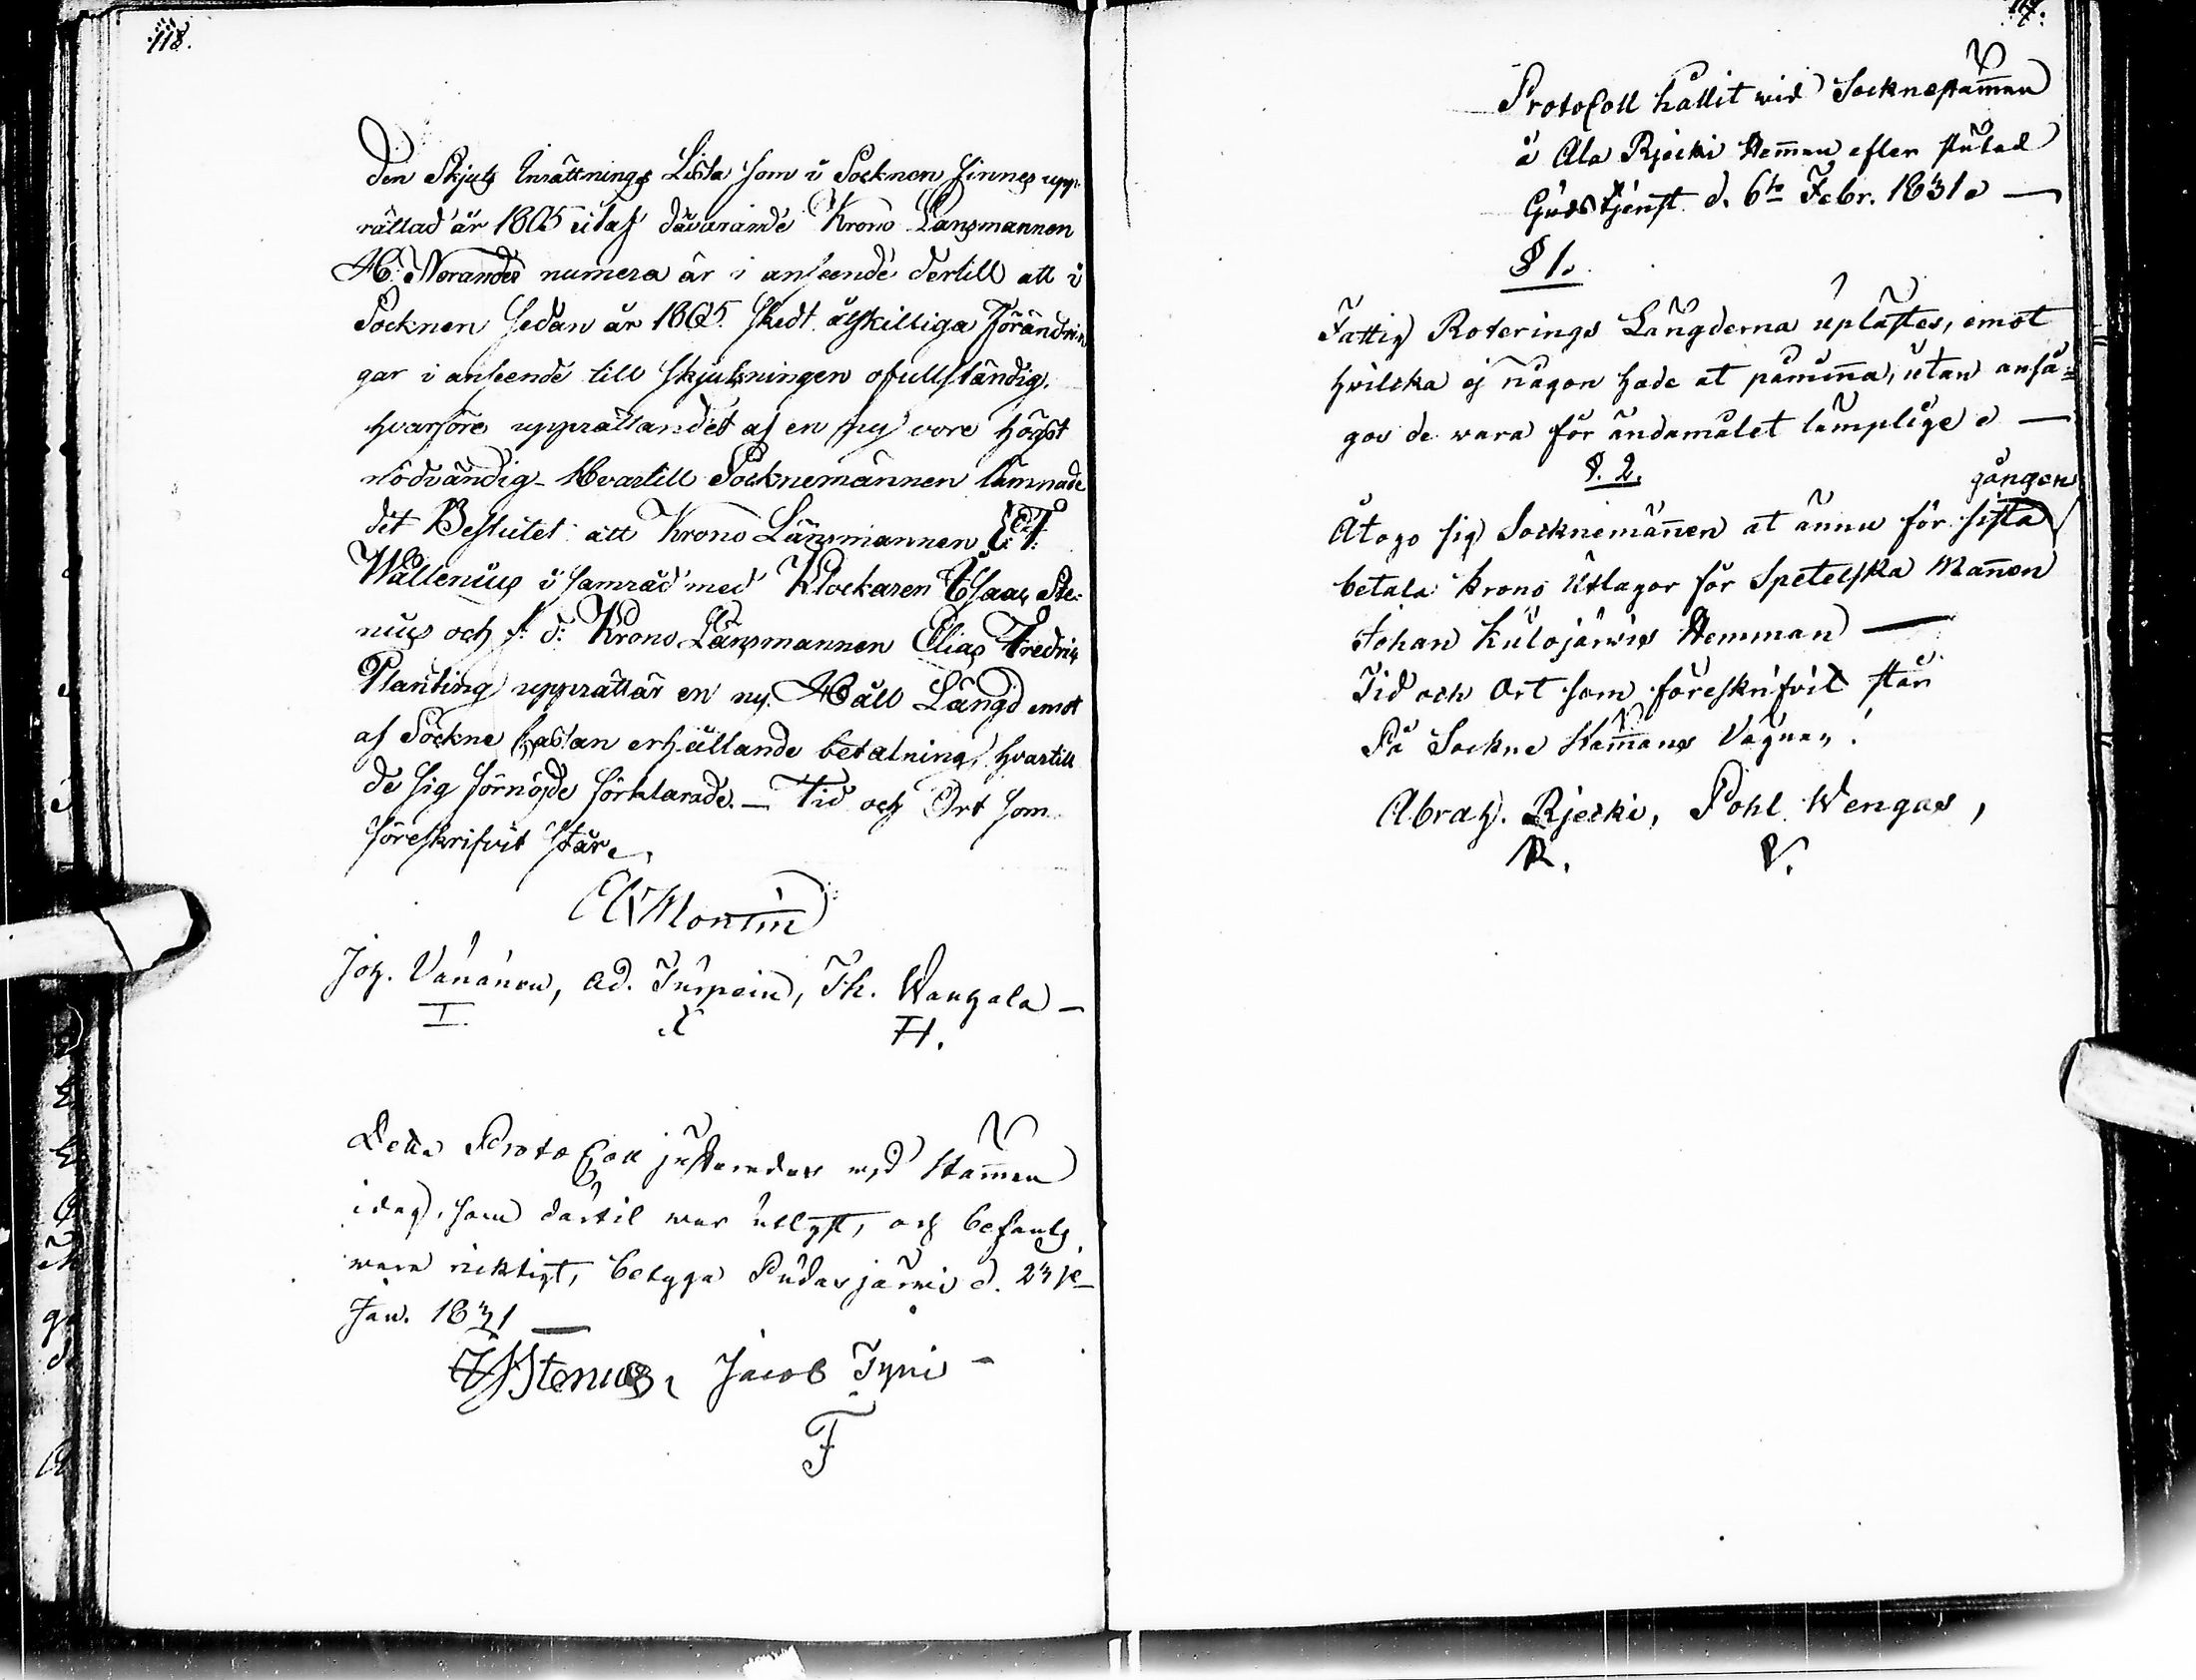 118.
Den Skjuts Inrättnings Lista som i Socknen finnes upp-
rättad år 1805 utaf dåvarande Krono Länsmannen
H. Norander numera är i anseende dertill att i
Socknen sedan år 1805 skedt åtskilliga Förändrin
gar i anseende till skjutsningen ofullständig,
hvarföre upprättandet af en ny vore högst
nödvändig. Hvartill Socknemännen lämnade
det Beslutet att Krono Länsmannen
Wallenius i samråd med Klockaren Isaac Ste-
nius och f. d. Krono Länsmannen Elias Fredric
Planting upprättar en ny Håll Längd emot
af Sockne Cassan erhållande betalning, hvartill
de sig förnöjde förklarade. — Tid och Ort som
föreskrifvit står.
Montin
Joh. Vänänen, Ad. Turpein, Th. Wangala —
I. X H.
Detta Protocoll justerades wid Stämman
idag, som därtil war utlyst, och befants
wara riktigt, betyga Pudasjärwi d. 23je
Jan. 1831 —
Stenius, Jacob Tyni —
F
117.
Protocoll hållit wid Socknestämman
å Ala Rjecki Hemman efter slutad
Gudstjenst d. 6te Febr. 1831 —
§ 1.
Fattig Roterings Längderna uplästes, emot
hvilcka ej någon hade at påminna, utan anså=
gos de wara för ändamålet lämplige —
§. 2.
gången
Åtogo sig Socknemännen at ännu för sista
betala krono Utlagor för Spetelska Mannen
Johan Kulojärwis Hemman —
Tid och Ort som föreskrifvit står
På Sockne Stämmans Vägnar,
Abrah. Rjecki, Pohl Wengas,
R. V.